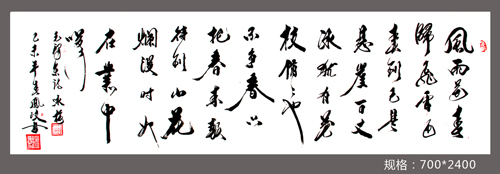 風雨送春
歸飛雪迎
春到已是
懸崖百丈
冰犹有花
枝俏俏也
不争春只
把春来報
待到山花
爛漫时她
在叢中
笑
毛澤东詞咏梅
乙未年 鳳 書
规格：700*2400